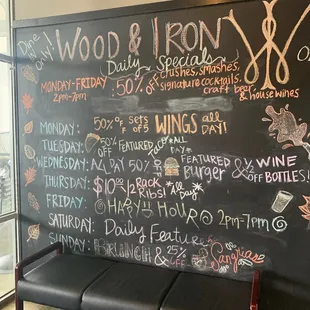 Dine in
only!
WOOD & IRON
Daily Specials
MONDAY-FRIDAY
2pm-7pm
50% off
crushes, smashes,
signature cocktails,
craft beer
& house wines
MONDAY: 50% off Sets of 5 WINGS all DAY!
TUESDAY: 50% off Featured Taco *ALL DAY*
WEDNESDAY: ALL DAY 50% off FEATURED Burger & ½ off WINE BOTTLES!
THURSDAY: $10 ½ Rack Ribs! *All Day*
FRIDAY: HAPPY HOUR 2pm-7pm
SATURDAY: Daily Features
SUNDAY: BRUNCH & 25% OFF Sangrias